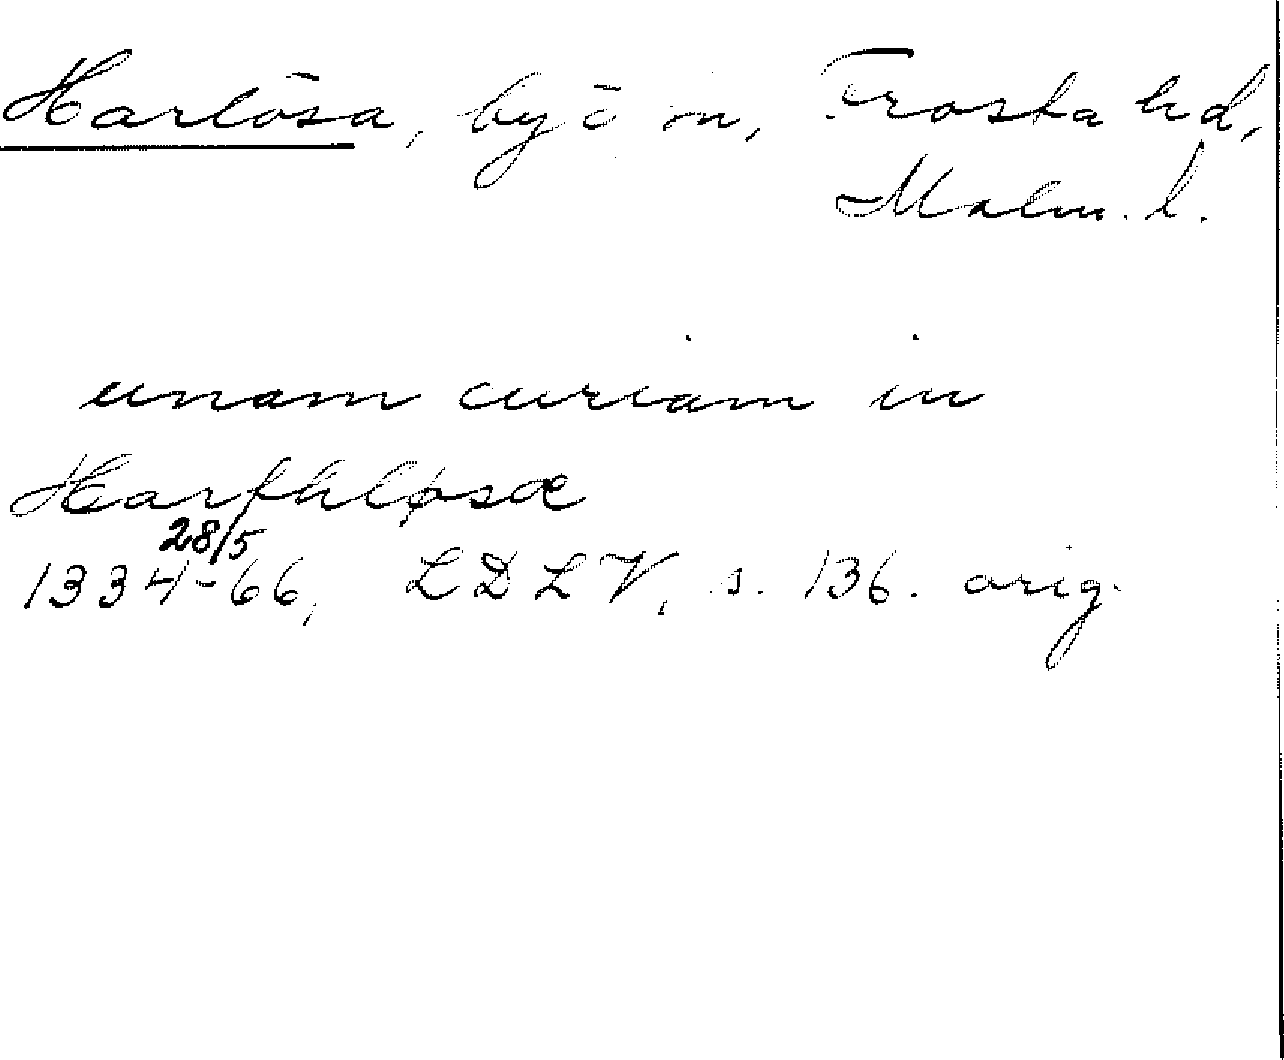 Harlösa, by o sn, Frosta hd,
Malm. l.
unam curiam in
Harfhløsæ
28/5
1334-66, LDLV, s. 136. orig.